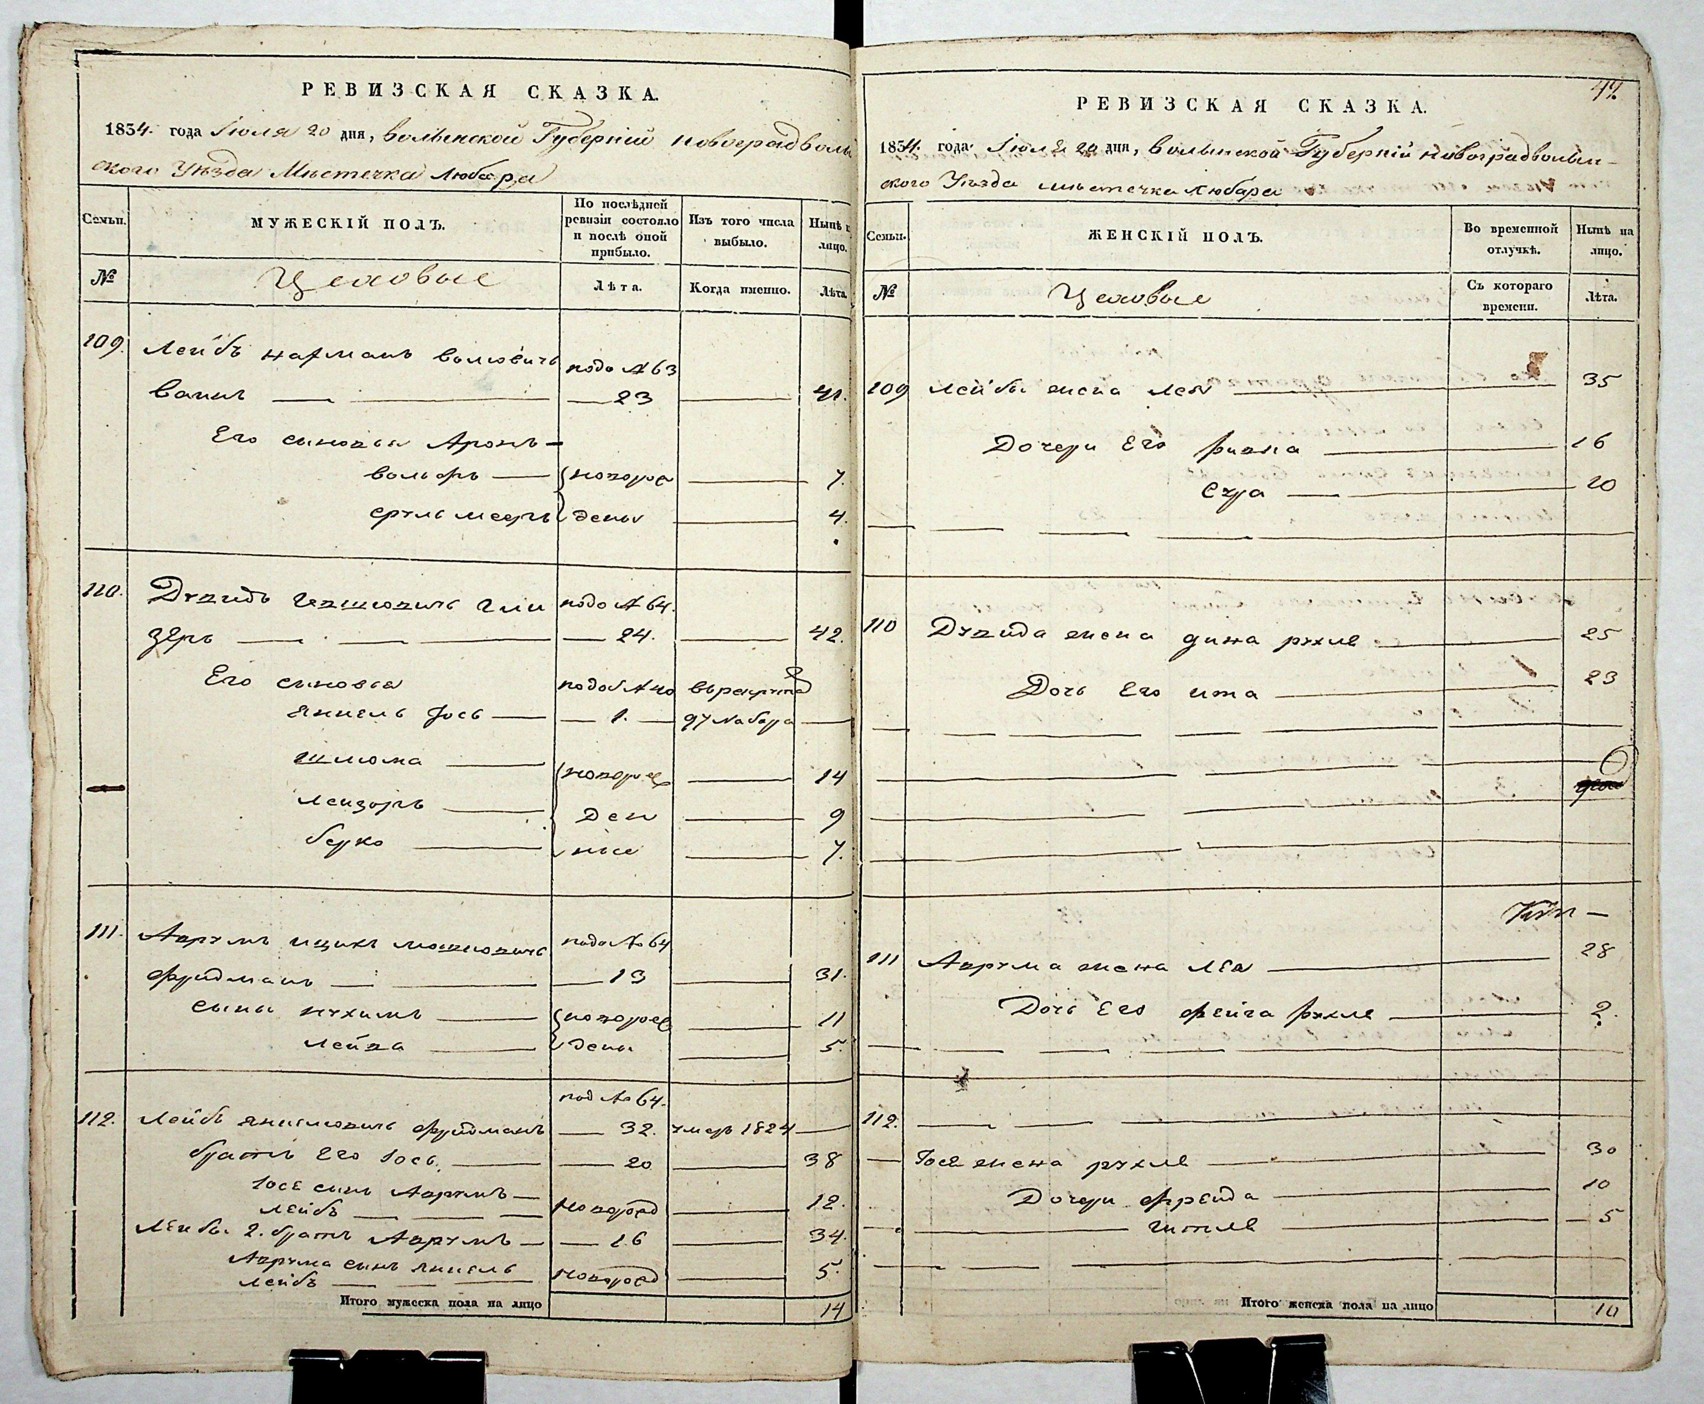 РЕВИЗСКАЯ СКАЗКА.
1834. года Іюля 20 дня, Волынской Губерніи Новоградволын
скаго Уѣзда Мѣстечка Любара
Семьи.
МУЖЕСКІЙ ПОЛЪ.
По послѣдней ревизіи состояло и послѣ оной прибыло.
Изъ того числа выбыло.
Нынѣ на лицо.
№
Цеховые
Лѣта.
Когда именно.
Лѣта.
109. Лейбъ Нахманъ Волковичъ подъ № 63
23 41.
Его сыновья Аронъ
Вольфъ новорож 7.
Сруль дены 4.
110. Давидъ подъ № 64.
зеръ 24. 42.
Его сыновья въ рекруты
Янкель Іось 1. 97 набора
Шлюма новорож 14
Лейзоръ ден 9
Берко ные 7.
111. Аврумъ Ицикъ Мошковичъ подъ № 64
Фридманъ 13 31.
Сыны Нухимъ новорож 11
Лейба дены 5.
под № 64.
112. Лейбъ Янкелювичъ Фридманъ 32. умеръ 1824
братъ Его Іось 20 38
Іося сынъ Аврумъ
Лейбъ новорожд 12.
Лейбы 2. братъ Аврумъ 16 34.
Аврума сынъ Янкель
Лейбъ новорожд 5.
Итого мужеска пола на лицо 14
РЕВИЗСКАЯ СКАЗКА.
1834. года Іюля 20 дня, Волынской Губерніи Новоградволын
скаго Уѣзда Мѣстечка Любара
Семьи.
ЖЕНСКІЙ ПОЛЪ.
Во временной отлучкѣ.
Нынѣ на лицо.
№
Цеховые
Съ котораго времени.
Лѣта.
109 Лейбы жена Лея 35
Дочери Его Ривка 16
Сура 10
110 Давида жена Дина Рухля 25
Дочь Его Ита 23
111 Аврума жена Лея 28
Дочь Его Фейга Рухля 2.
112.
Іося жена Рухля 30
Дочери Фрейда 10
Гитля 5
Итого женска пола на лицо 10